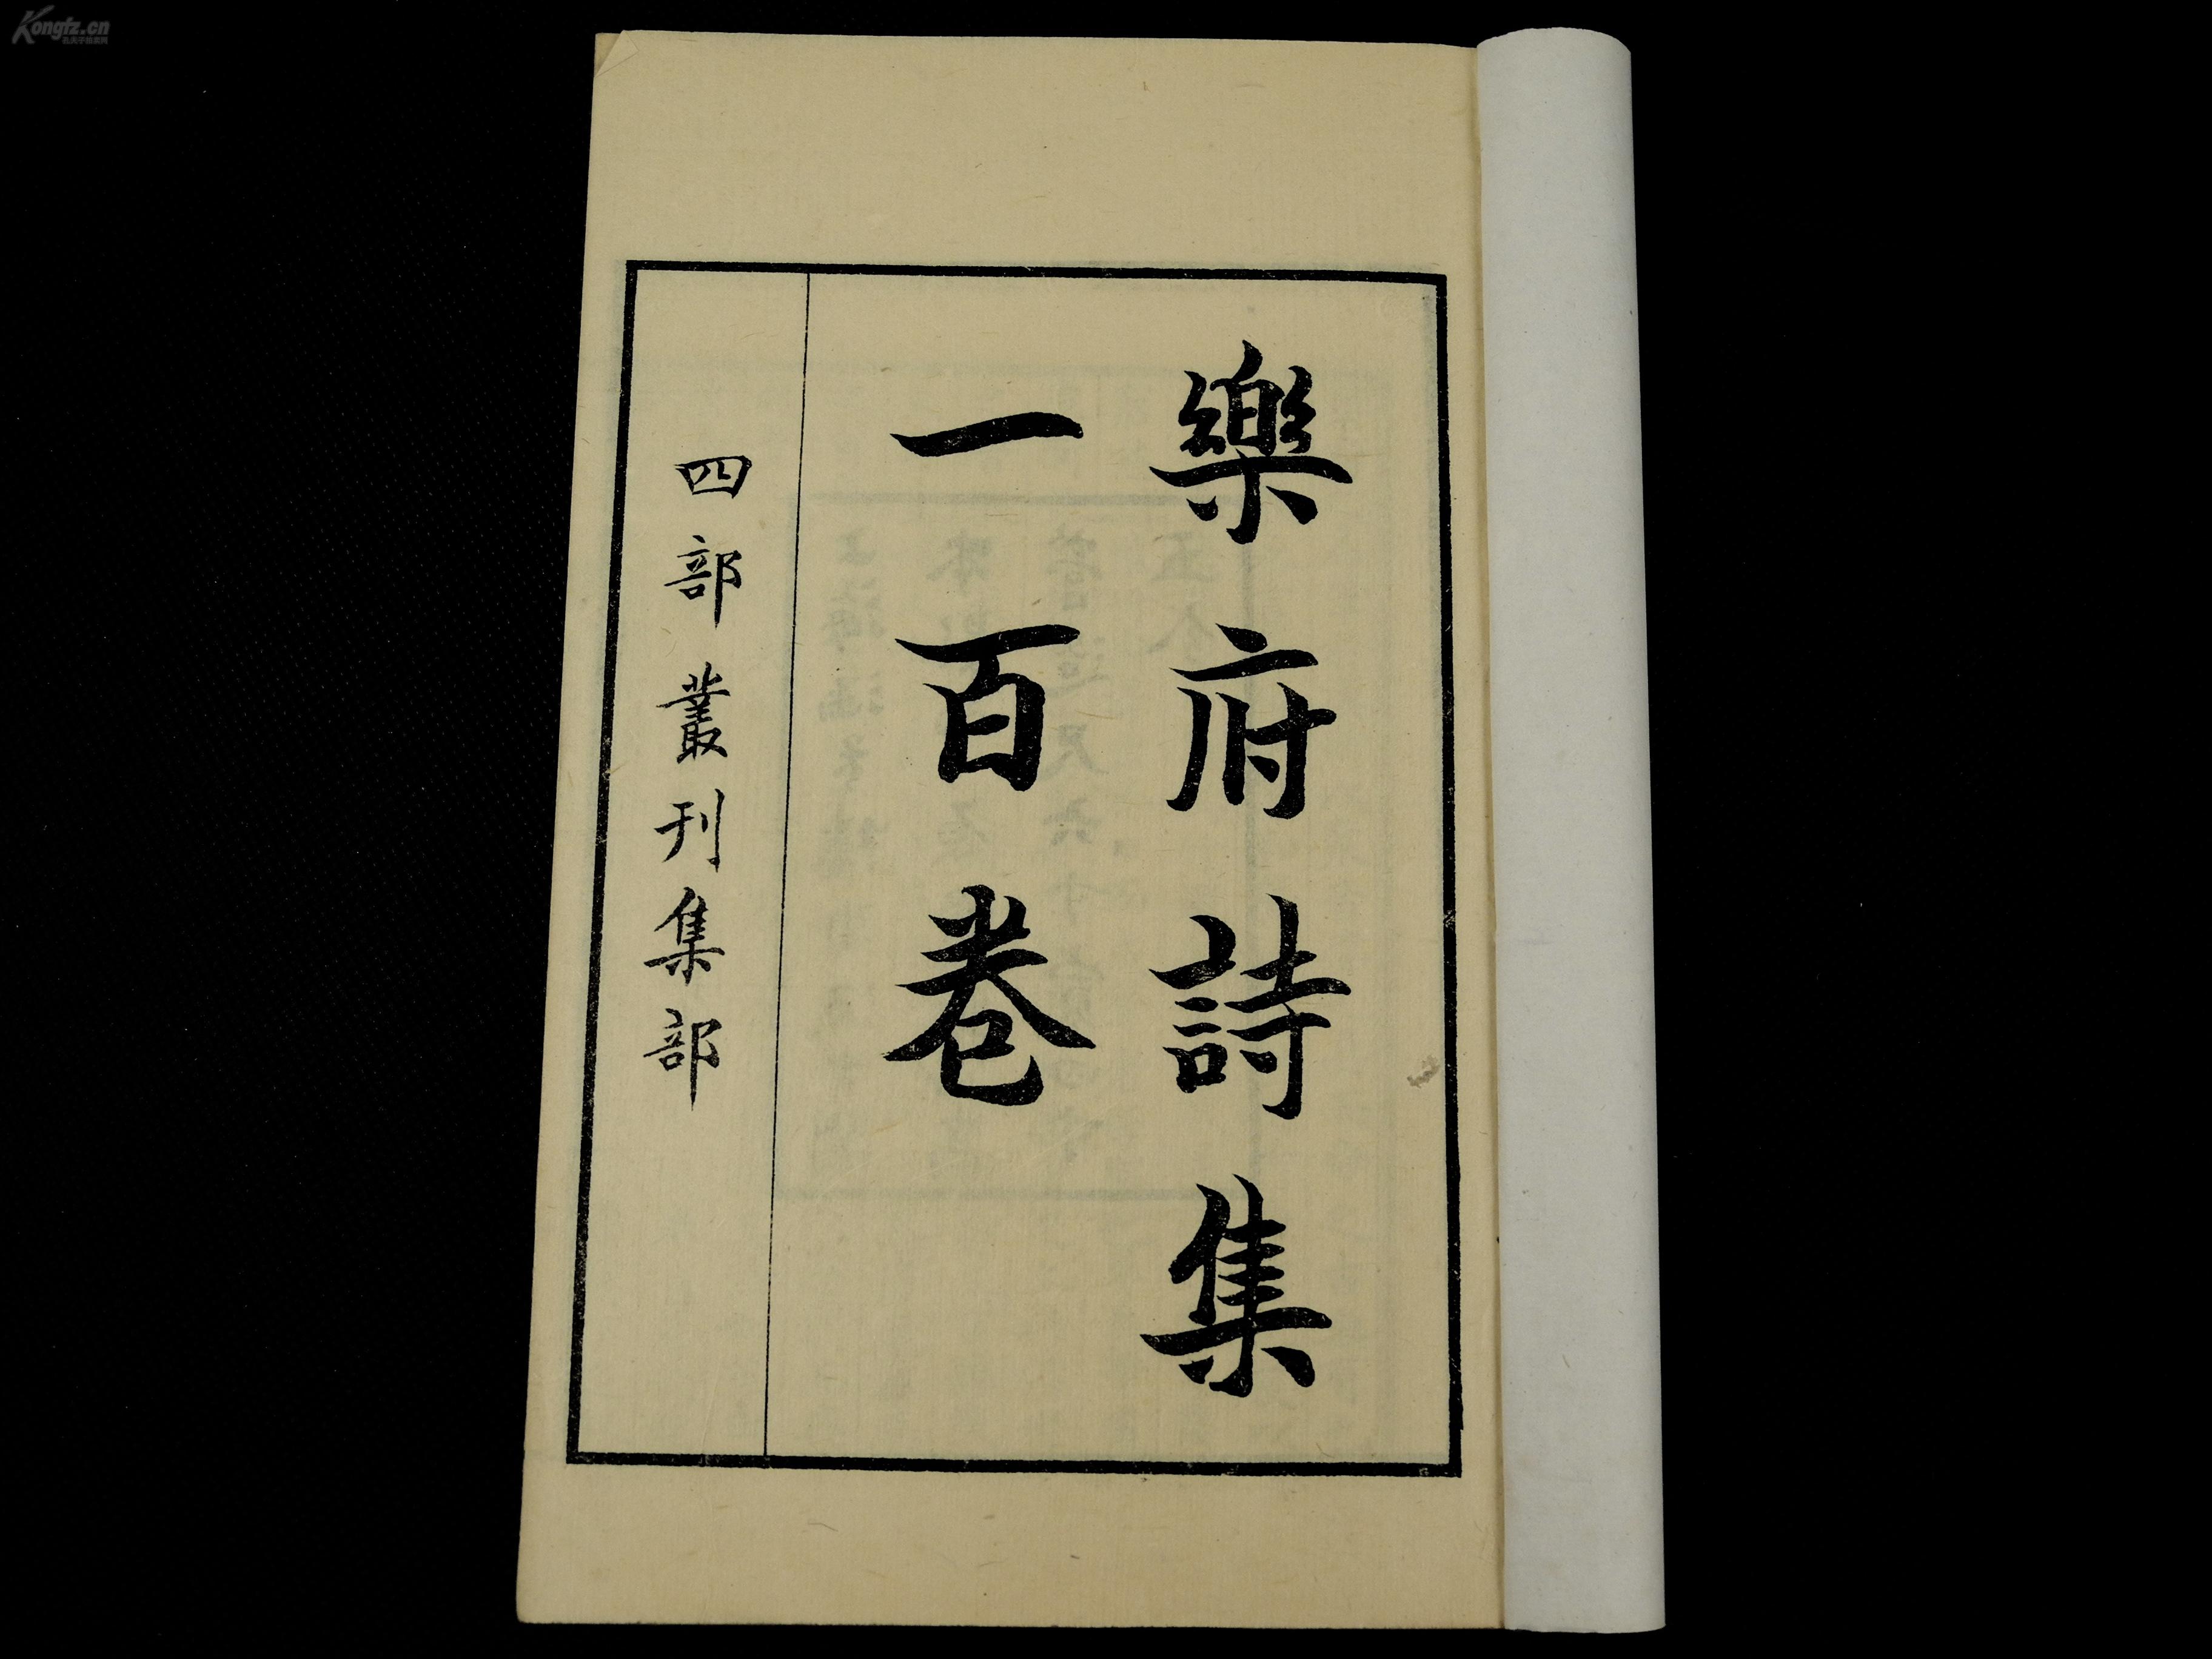 樂府詩集
一百卷
四部叢刊集部
Kongfz.cn